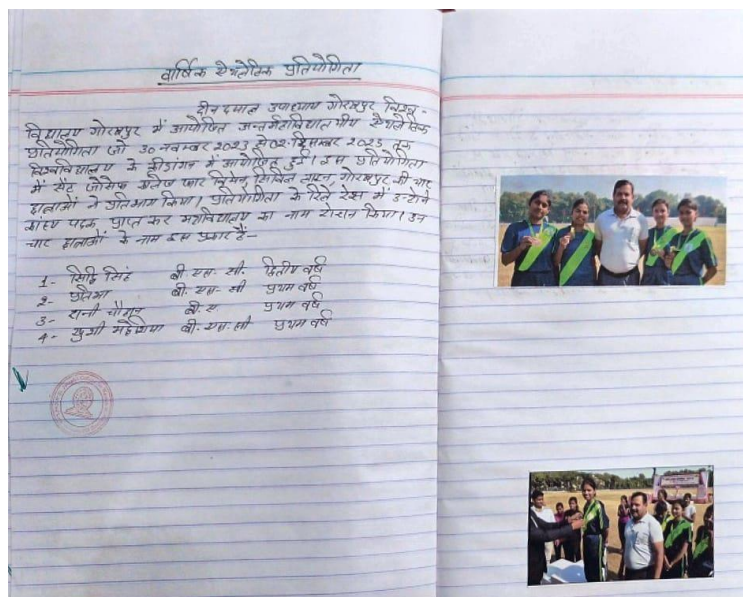 वार्षिक ऐथलेटिक प्रतियोगिता
दीन दयाल उपाध्याय गोरखपुर विश्व-
विद्यालय गोरखपुर में आयोजित अन्तर्महाविद्यालयीय ऐथलेटिक
प्रतियोगिता जो 30 नवम्बर 2023 से 02 दिसम्बर 2023 तक
विश्वविद्यालय के क्रीडांगन में आयोजित हुई। इस प्रतियोगिता
में सेंट जोसेफ कालेज फार विमेन, सिविल लाइन, गोरखपुर की चार
छात्राओं ने प्रतिभाग किया। प्रतियोगिता के रिले रेस में इन्होंने
कांस्य पदक प्राप्त कर महाविद्यालय का नाम रोशन किया। उन
चार छात्राओं के नाम इस प्रकार हैं-
1- सिद्धि सिंह बी. एस. सी. द्वितीय वर्ष
2- प्रतिभा बी. एस. सी प्रथम वर्ष
3- रानी चौहान बी. ए प्रथम वर्ष
4- खुशी बी. एस. सी प्रथम वर्ष